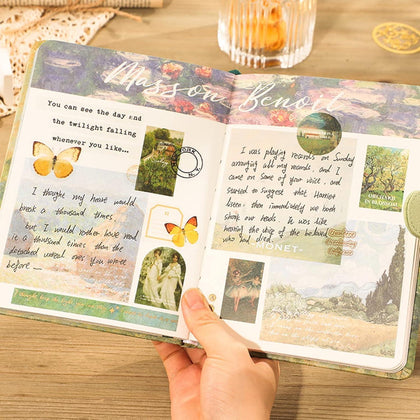 Masson Benoit
You can see the day and
the twilight falling
whenever you like...
I thought my heart would
break a thousand times
but I would rather have read
it a thousand times than the
wreaked you were
before
I was playing records on Sunday
arranging all my records, and I
came on some of your voice, and
started to suggest that Harriet
listen: then immediately we both
shook our heads. It was like
hearing the voice of the beloved
who had died.
MONET
IN BLOSSOM